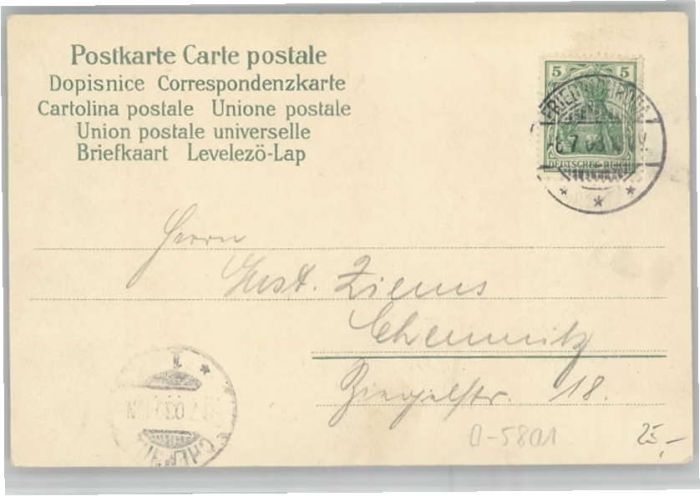 Postkarte Carte postale
Dopisnice Correspondenzkarte
Cartolina postale Unione postale
Union postale universelle
Briefkaart Levelezö-Lap
5 5
DEUTSCHES REICH
Herrn
Gust. Ziems
Chemnitz
Ziegelstr. 18.
0-5801
25,-